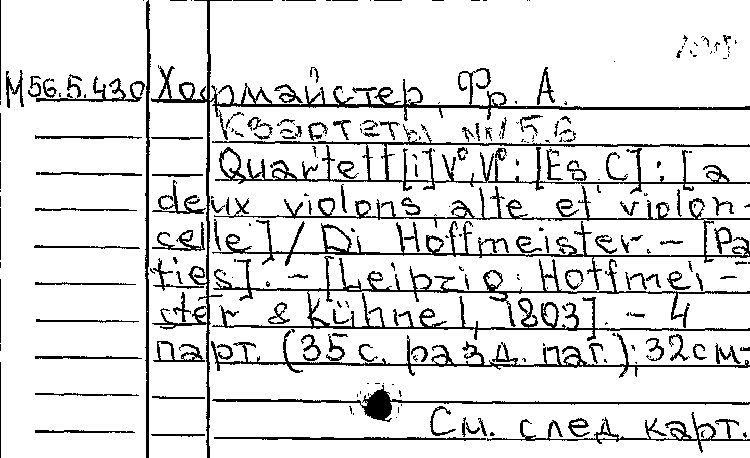 М56.5.430 Хофмайстер, Фр. А.
Квартеты, №№ 5.6
Quartett[i] V°, VI°: [Es, C] : [a
deux violons, alte et violon-
celle] / Di Hoffmeister. – [Pa
ties]. – [Leipzig : Hoffmei-
ster & Kühnel, 1803]. – 4
парт. (35 с. разд. паг.); 32 см.
См. след. карт.